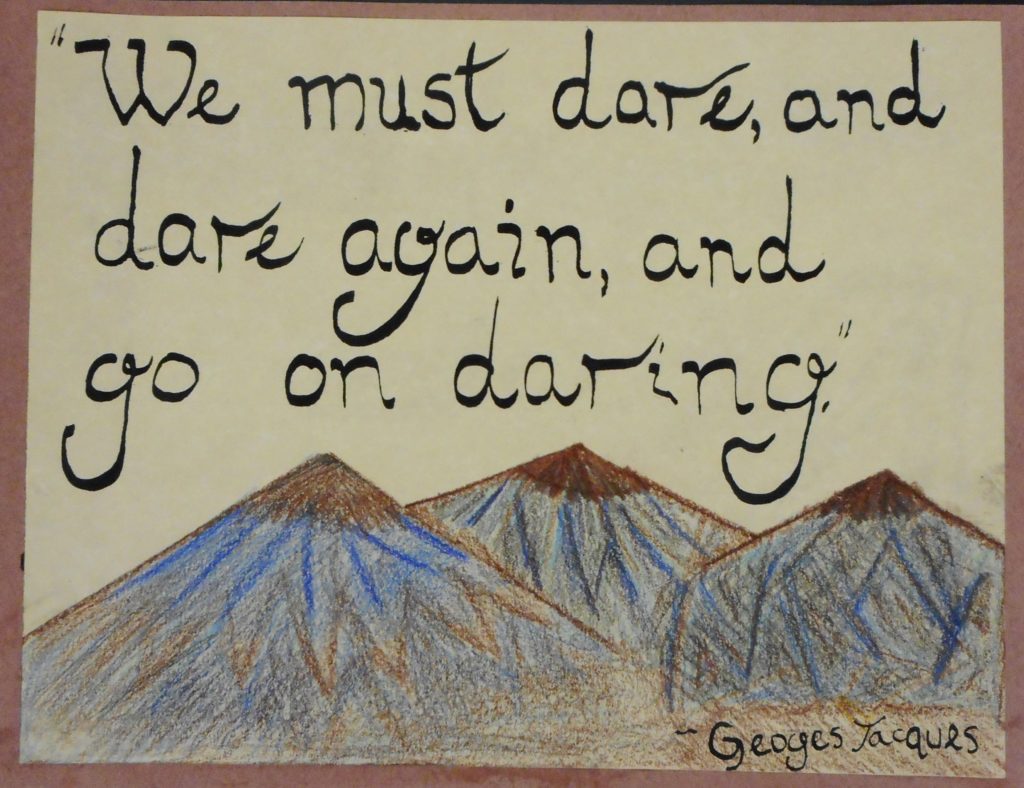 "We must dare, and
dare again, and
go on daring."
~ Geoges Jacques